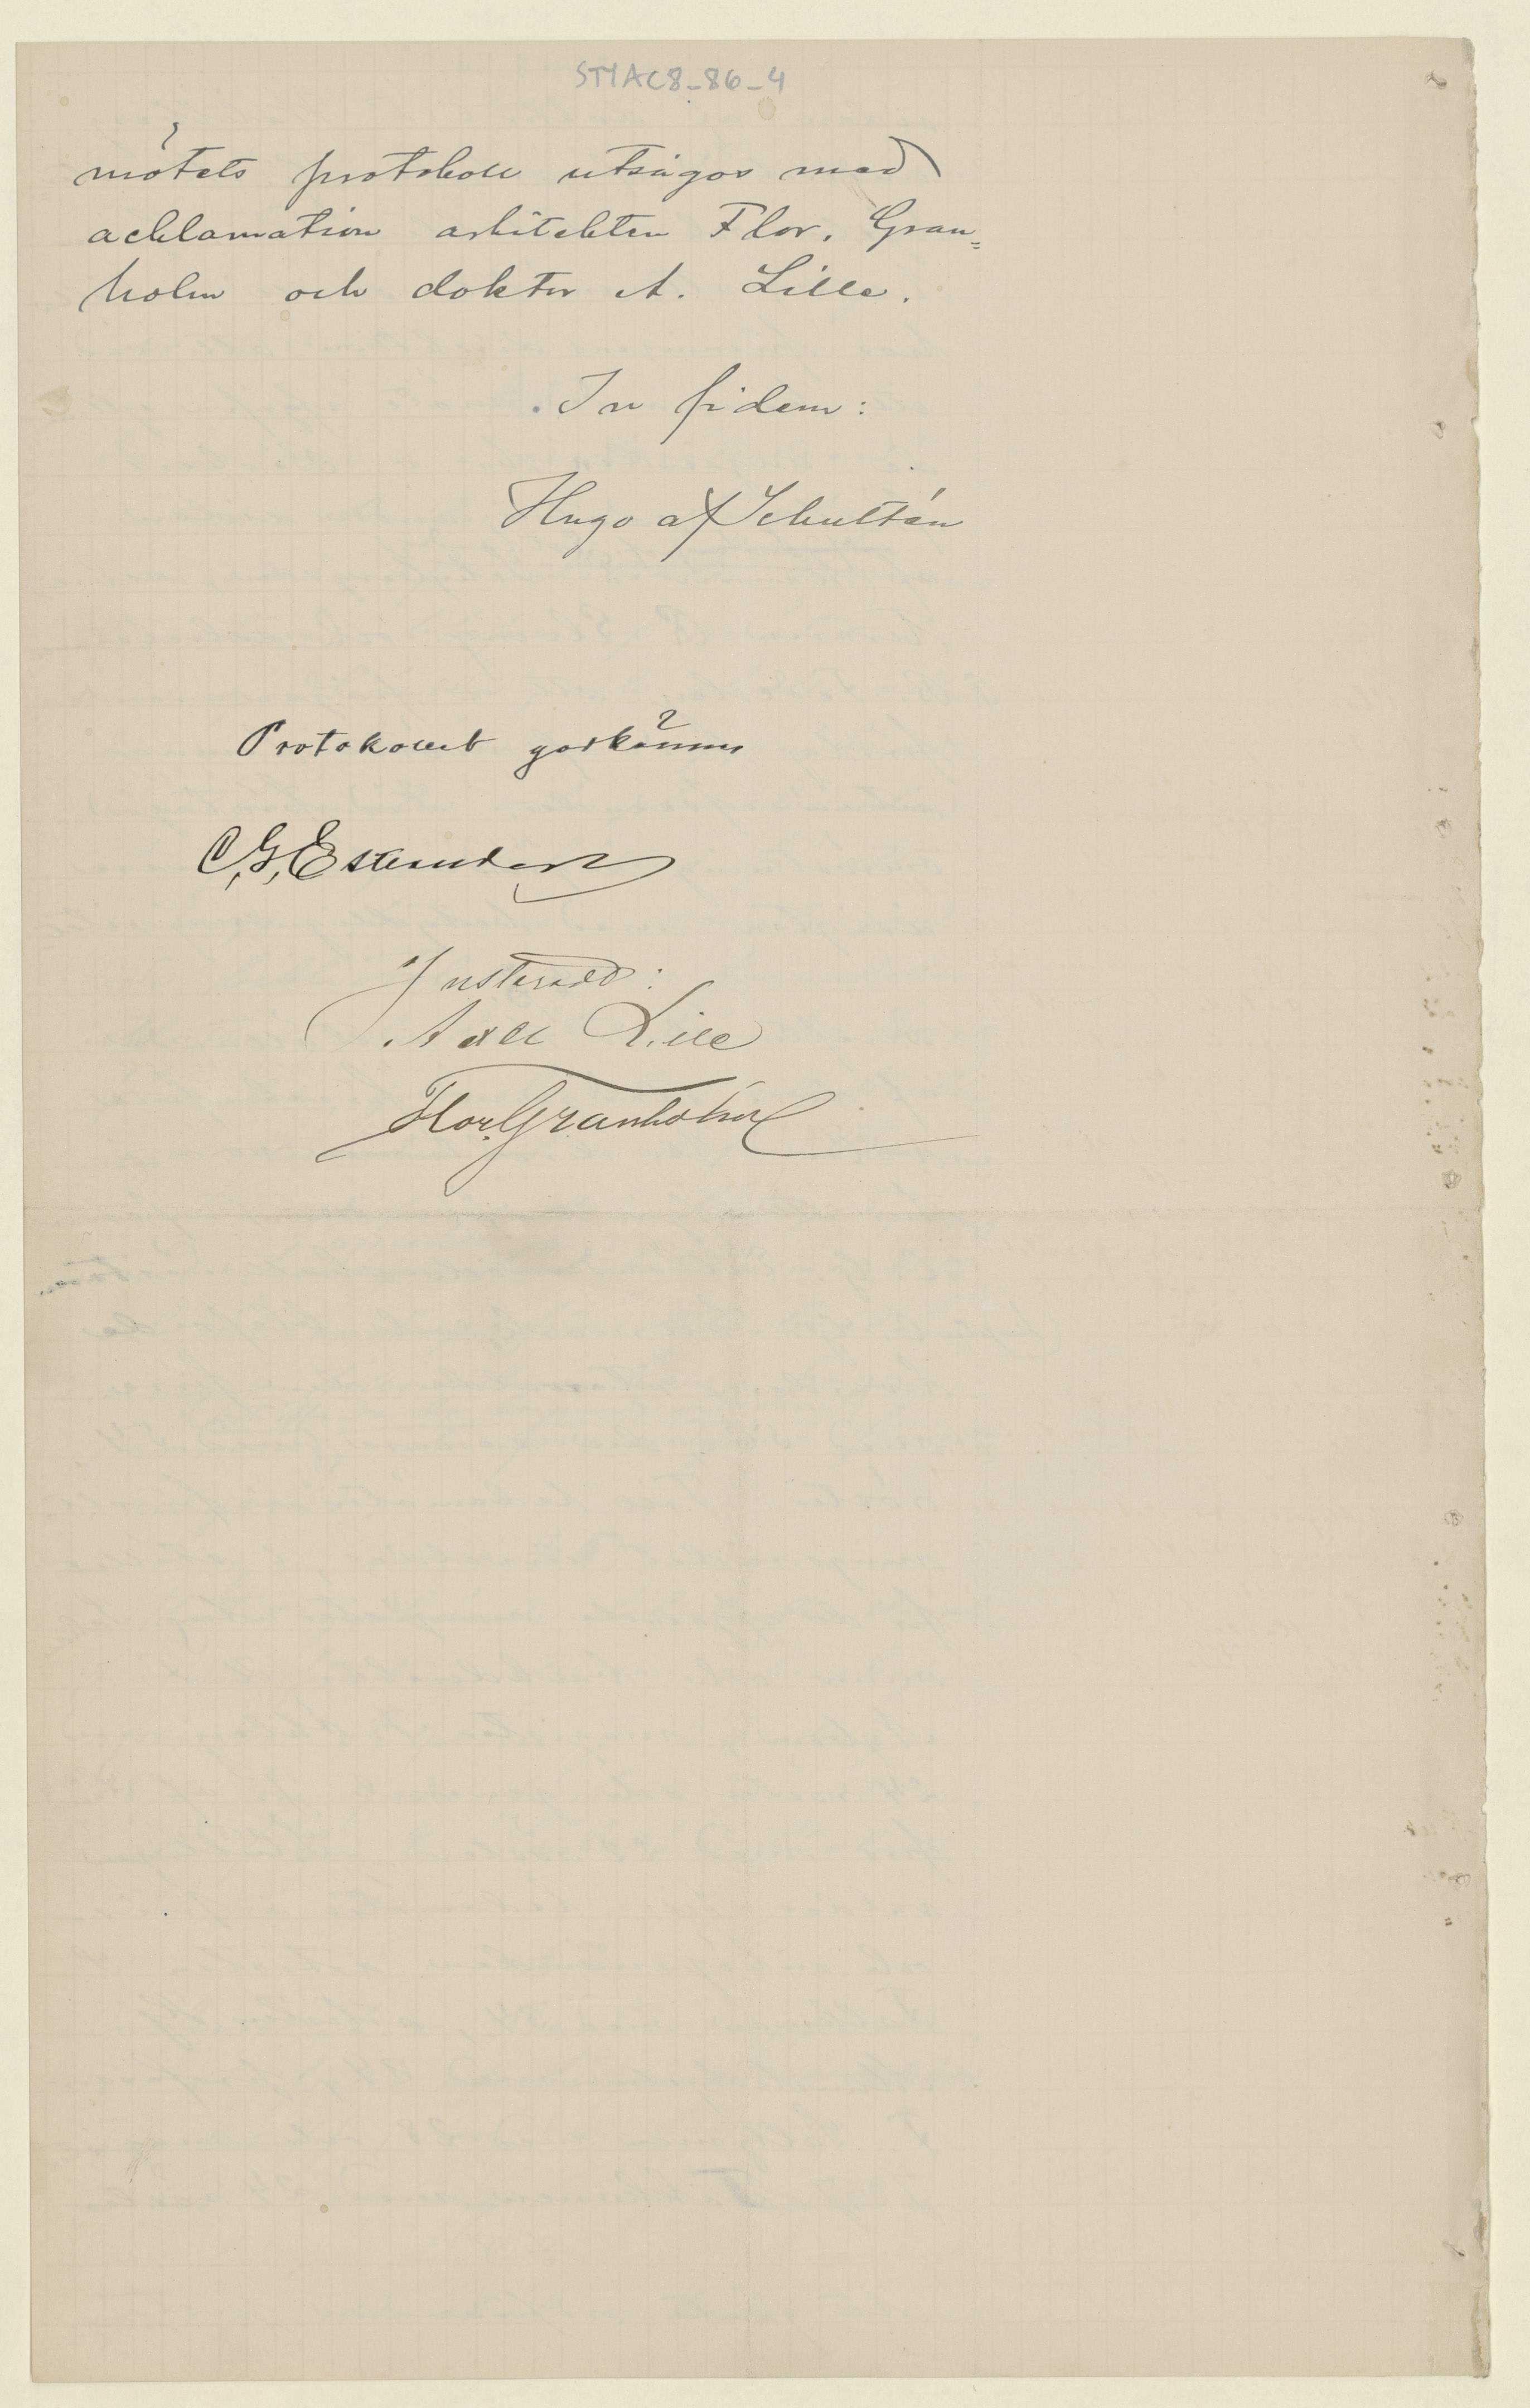 STYAC8_86_4
mötets protokoll utsågos med
acklamation arkitekten Flor. Gran=
holm och doktor A. Lille.
In fidem:
Hugo af Schultén
Protokollet godkännes
C, G, Estlander
Justeradt:
Axel Lille
Flor. Granholm